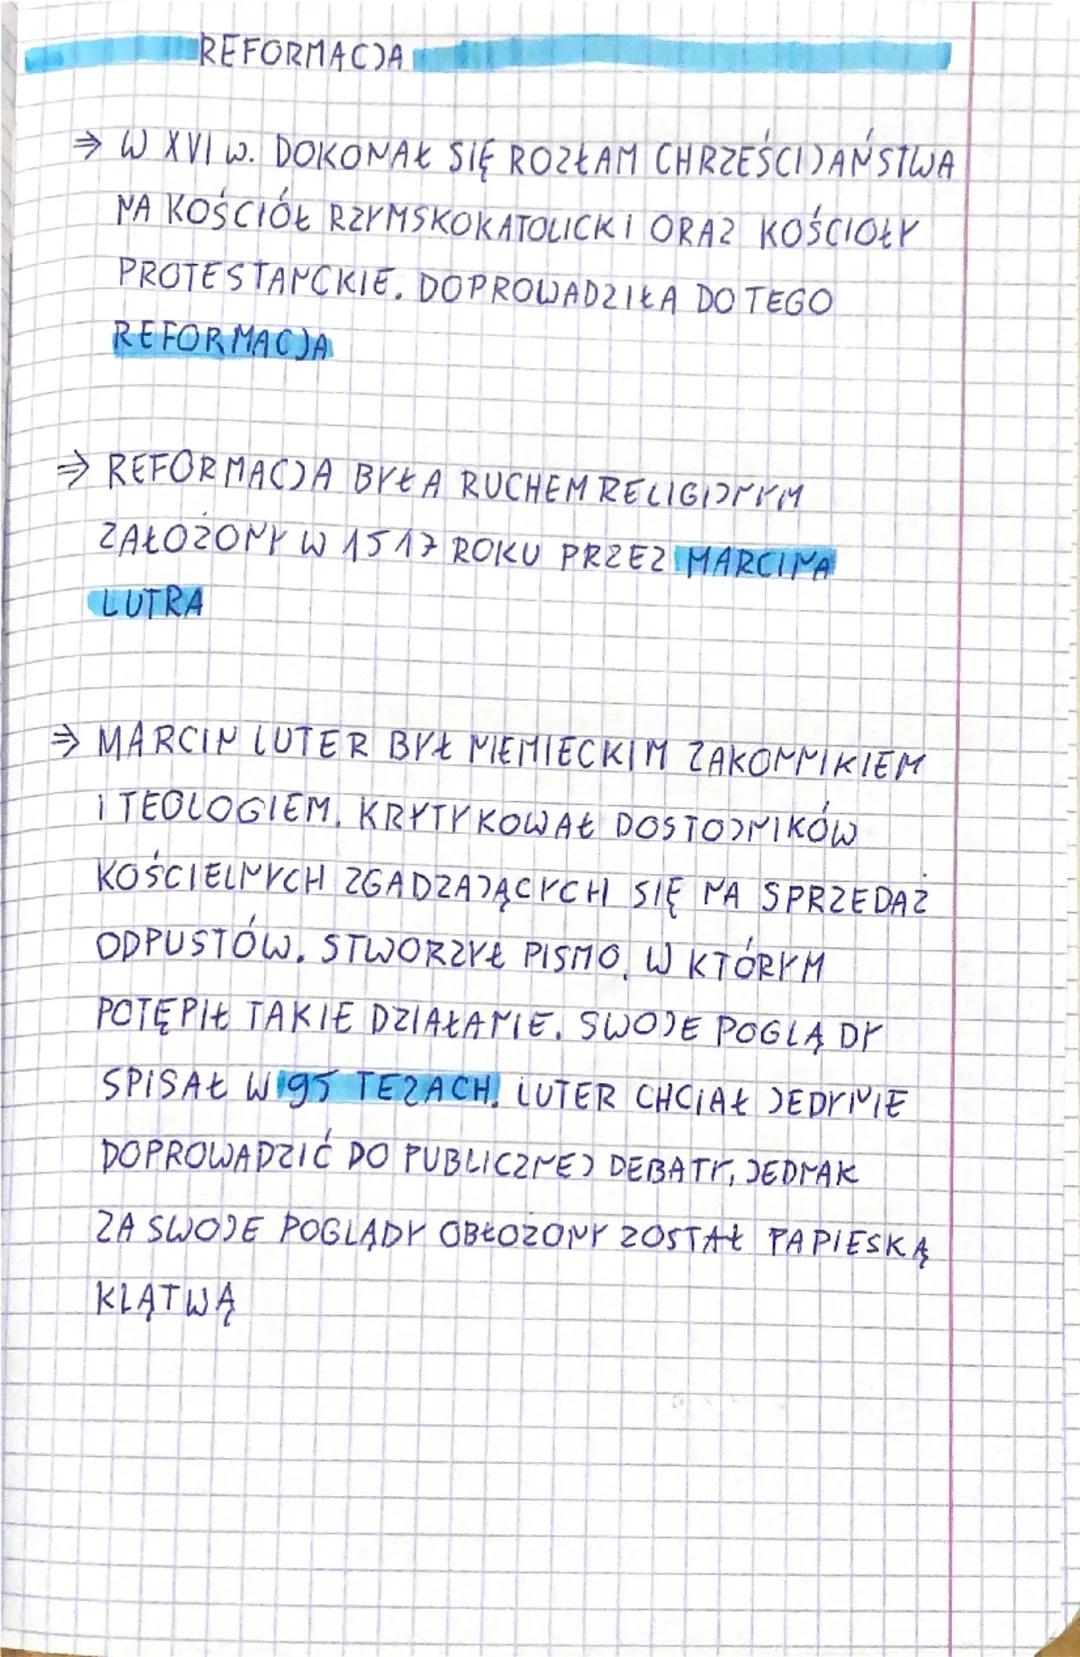 REFORMACJA
⇒ W XVI w. DOKONAŁ SIĘ ROZŁAM CHRZEŚCIJAŃSTWA
NA KOŚCIÓŁ RZYMSKOKATOLICKI ORAZ KOŚCIOŁY
PROTESTANCKIE. DOPROWADZIŁA DO TEGO
REFORMACJA
⇒ REFORMACJA BYŁA RUCHEM RELIGIJNYM
ZAŁOŻONY W 1517 ROKU PRZEZ MARCINA
LUTRA
⇒ MARCIN LUTER BYŁ NIEMIECKIM ZAKONNIKIEM
I TEOLOGIEM. KRYTYKOWAŁ DOSTOJNIKÓW
KOŚCIELNYCH ZGADZAJĄCYCH SIĘ NA SPRZEDAŻ
ODPUSTÓW. STWORZYŁ PISMO, W KTÓRYM
POTĘPIŁ TAKIE DZIAŁANIE. SWOJE POGLĄDY
SPISAŁ W 95 TEZACH. LUTER CHCIAŁ JEDYNIE
DOPROWADZIĆ DO PUBLICZNEJ DEBATY, JEDNAK
ZA SWOJE POGLĄDY OBŁOŻONY ZOSTAŁ PAPIESKĄ
KLĄTWĄ